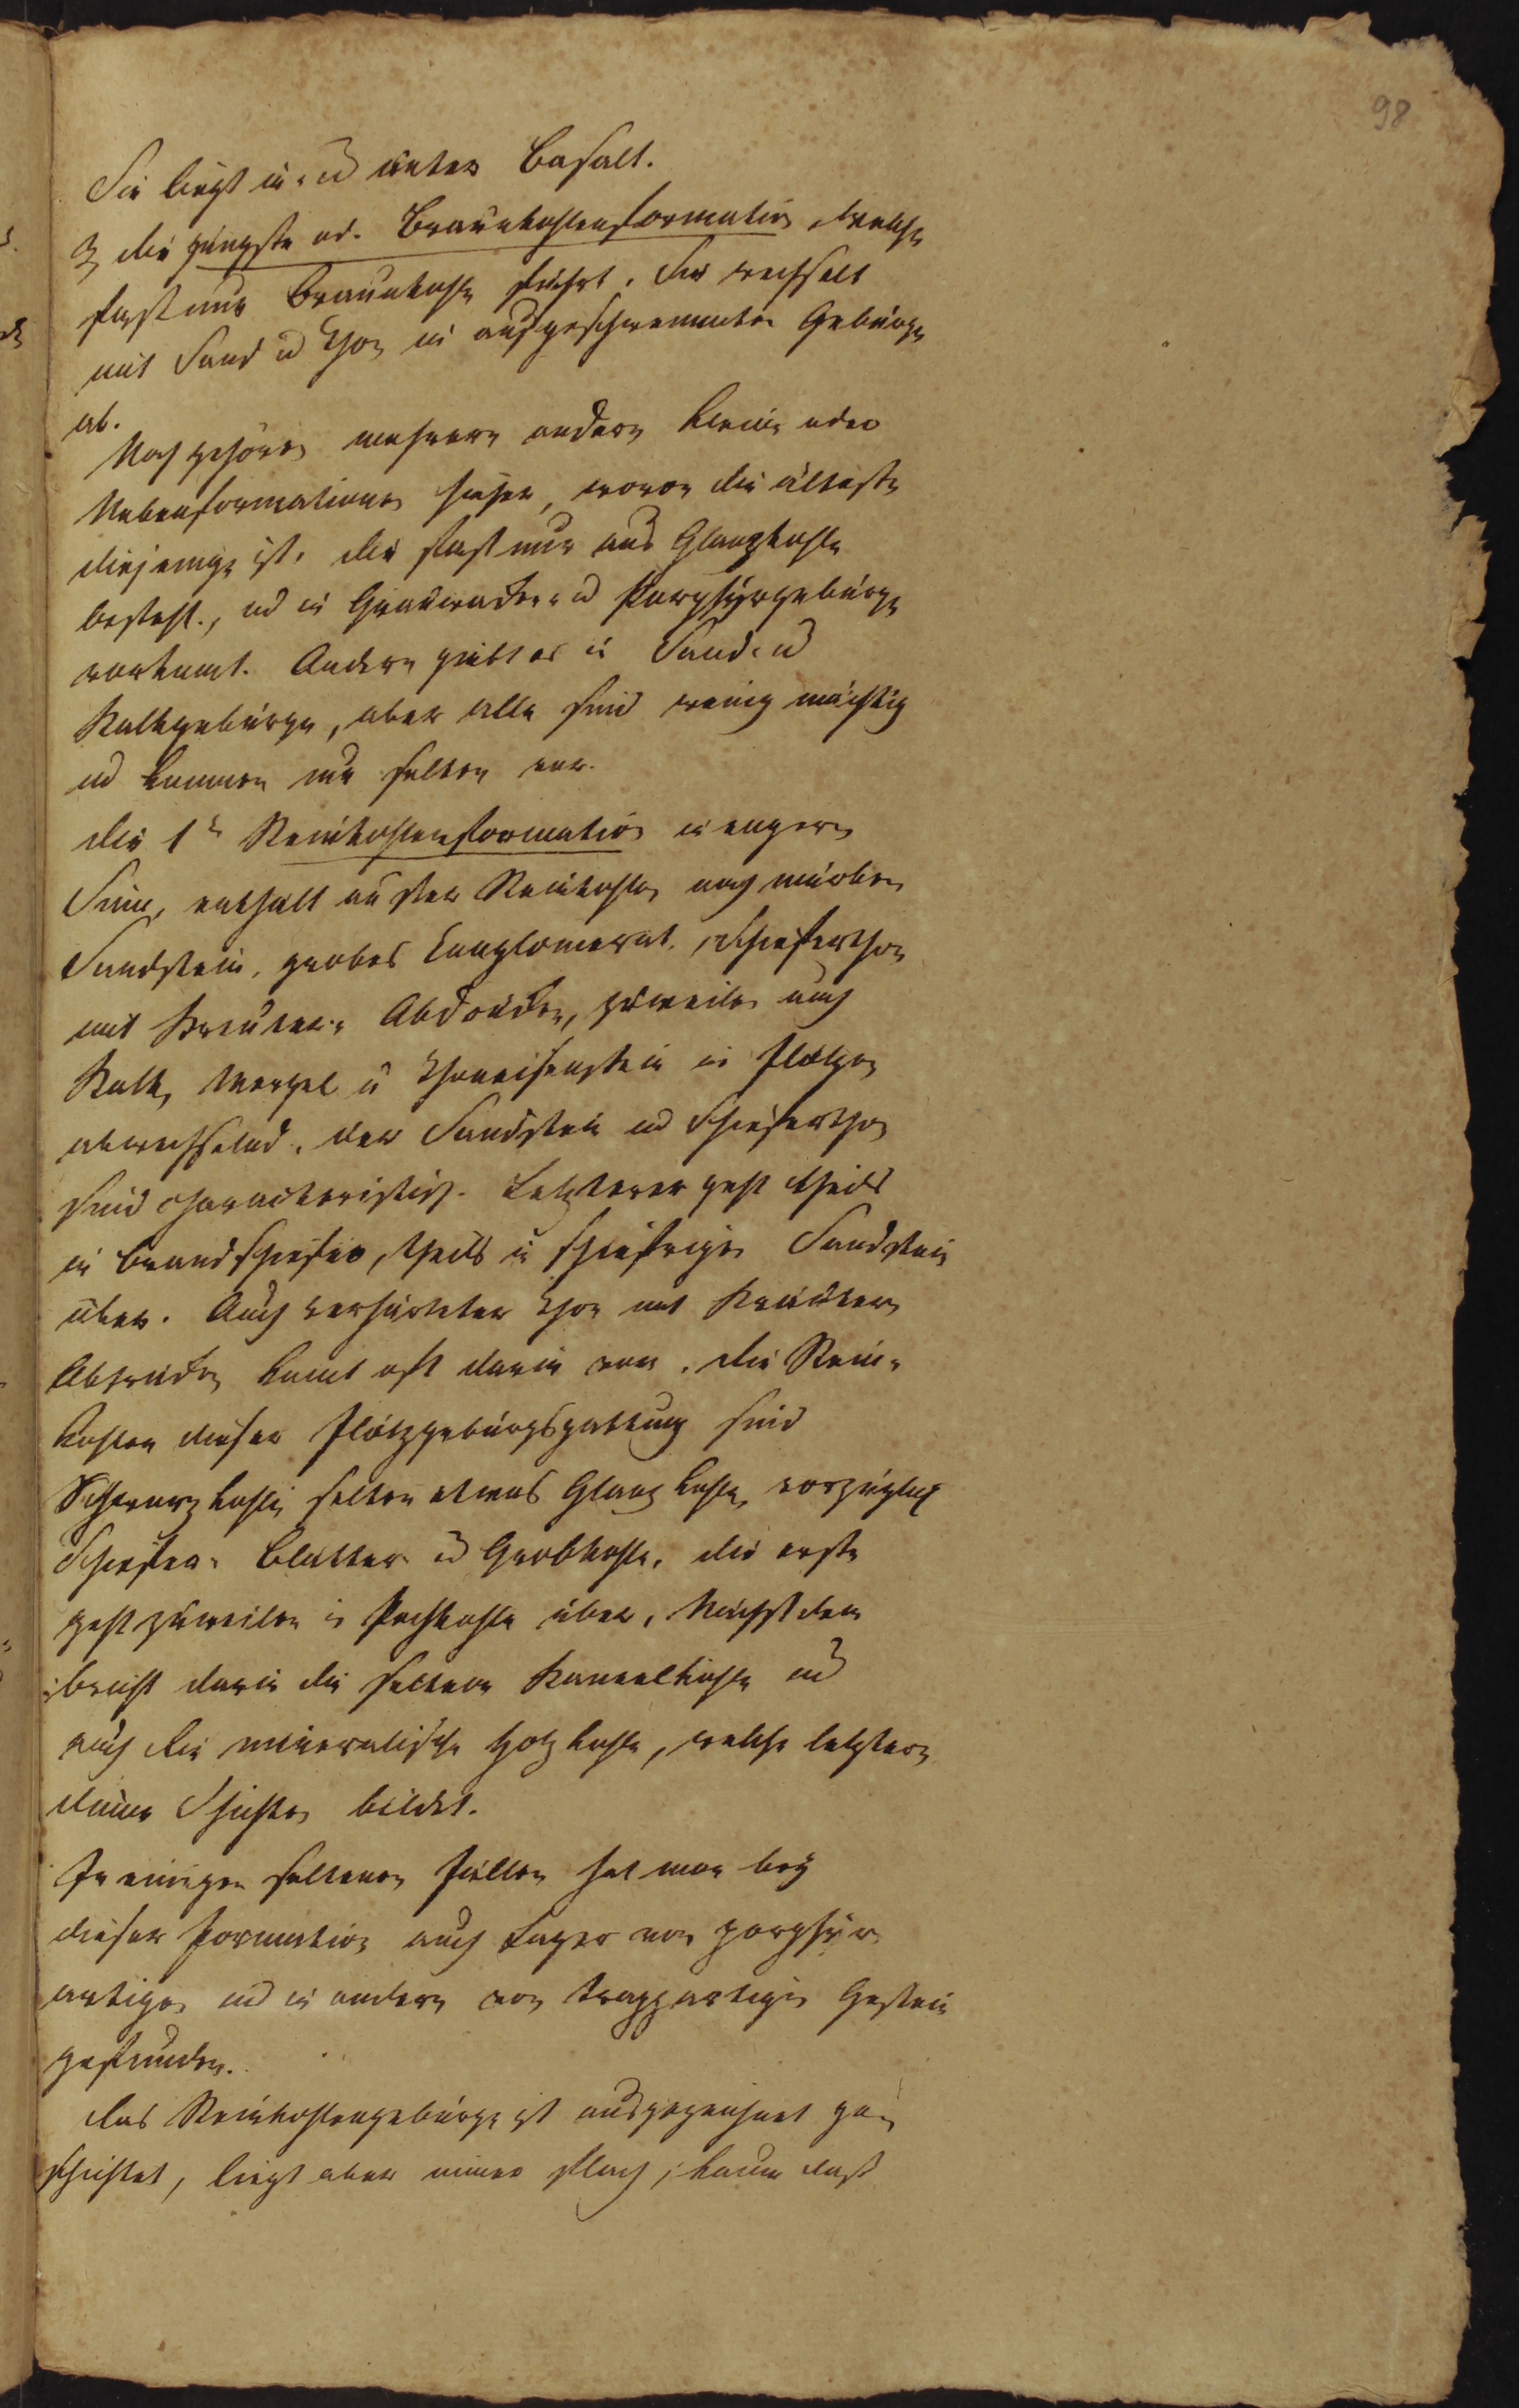 98
Sie liegt in u unter Basalt.
3, die jüngste od. Braunkohlenformation, welche
fast nur Braunkohle führt. Sie wechselt
mit Sand u Thon in aufgeschwemmten Gebürge
ab.
Noch gehören mehrere andere kleine oder
Nebenformationen hieher, wovon die älteste
diejenige ist, die fast nur aus Glanzkohle
besteht, ud in Grauwacken- u Porphyrgebürge
vorkomt. Andere giebt es in Sand- u
Kalkgebürge, aber alle sind wenig mächtig
ud kommen nur selten vor.
die 1e Steinkohlenformation in engern
Sinn, enthält ausser Steinkohlen noch mürben
Sandstein, grobes Conglomerat, Schieferthon
mit Kräuter-Abdrücken, zuweilen auch
Kalk, Mergel u Thoneisenstein in Flötzen
abwechselnd. der Sandstein ud Schieferthon
sind characteristisch. Letzterer geht theils
in Brandschiefer, theils in schiefrigen Sandstein
über. Auch verhärteter Thon mit Kräuter
Abdrücken komt oft darin vor. die Stein-
kohlen dieser Flötzgebürgsgattung sind
Schwarzkohle, selten etwas Glanzkohle, vorzüglich
Schiefer- Blätter- u Grobkohle. die erste
geht zuweilen in Pechkohle über. Nächstdem
bricht darin die seltene Kannelkohle ud
auch die mineralische Holzkohle, welche letztere
dünne Schichten bildet.
In einigen seltenen Fällen hat man bey
dieser Formation auch Lager von porphyr-
artigen ud in andern von trappartigen Gestein
gefunden.
das Steinkohlengebürge ist ausgezeichnet ge-
schichtet, liegt aber immer flach; kaum dass